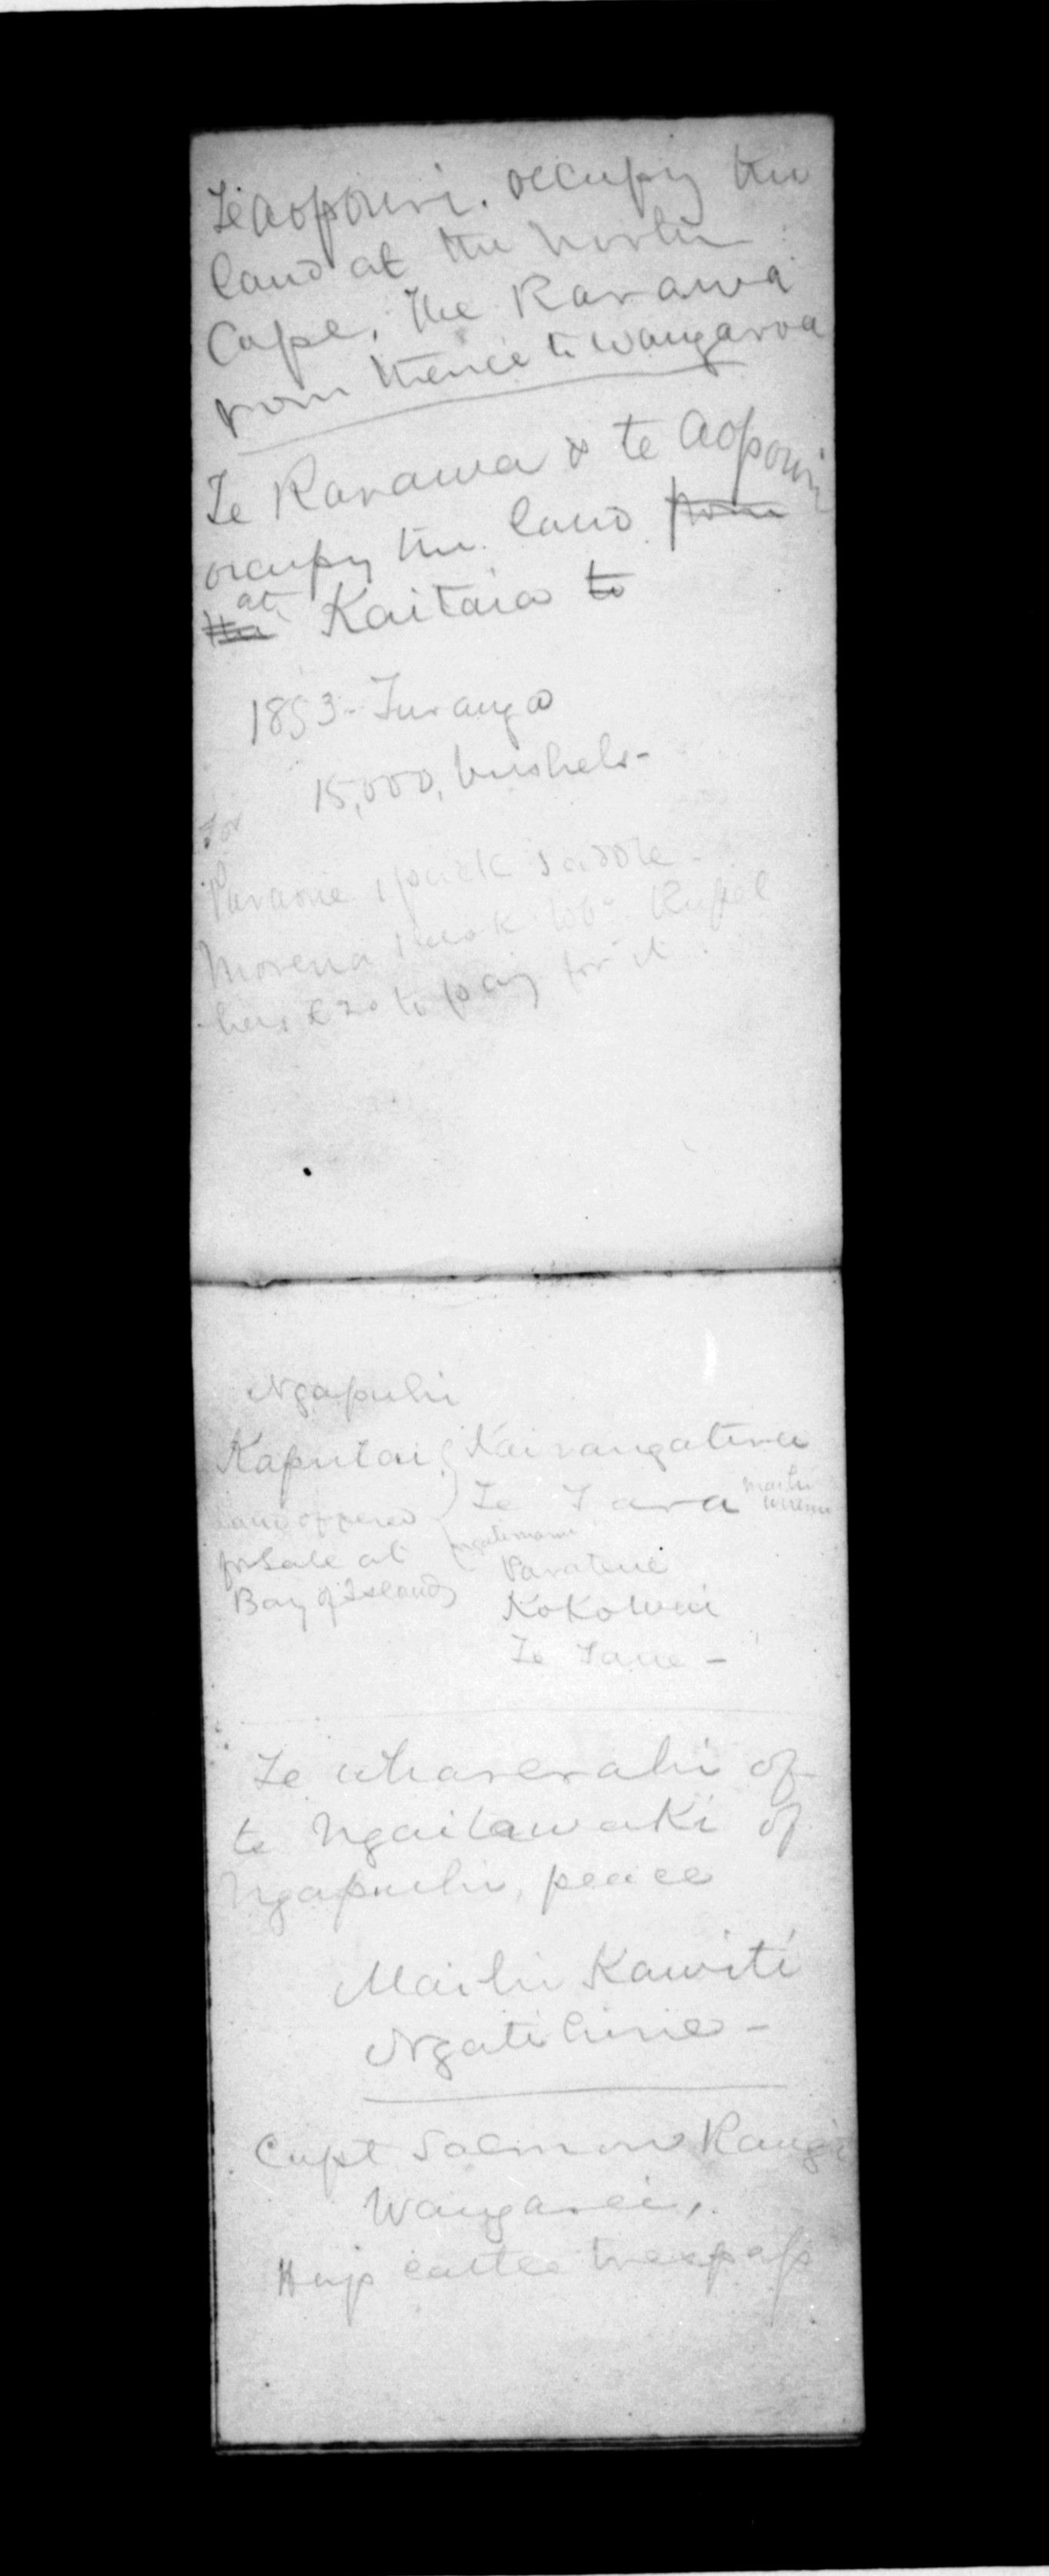 Te Aopouri. occupy the
land at the North
Cape, the Rarawa
from thence to Wangaroa
Te Rarawa & te Aopouri
occupy the land from
the at Kaitaia to
1853 - Turanga
15,000, bushels -
For
Paraone 1 pack saddle -
Morena
has £20 to pay for it.
Ngapuhi
Kaputai Kairangatira
Te Tara Maihi
land offered
for Sale at
Bay of Islands
Paratene
Kokowai
Te Tane -
Te Wharerahi of
te Ngaitawaki of
Ngapuhi, peace
Maihi Kawiti
Ngatihine -
Capt Salmon Rangi
Wangarei,
cattle trespass